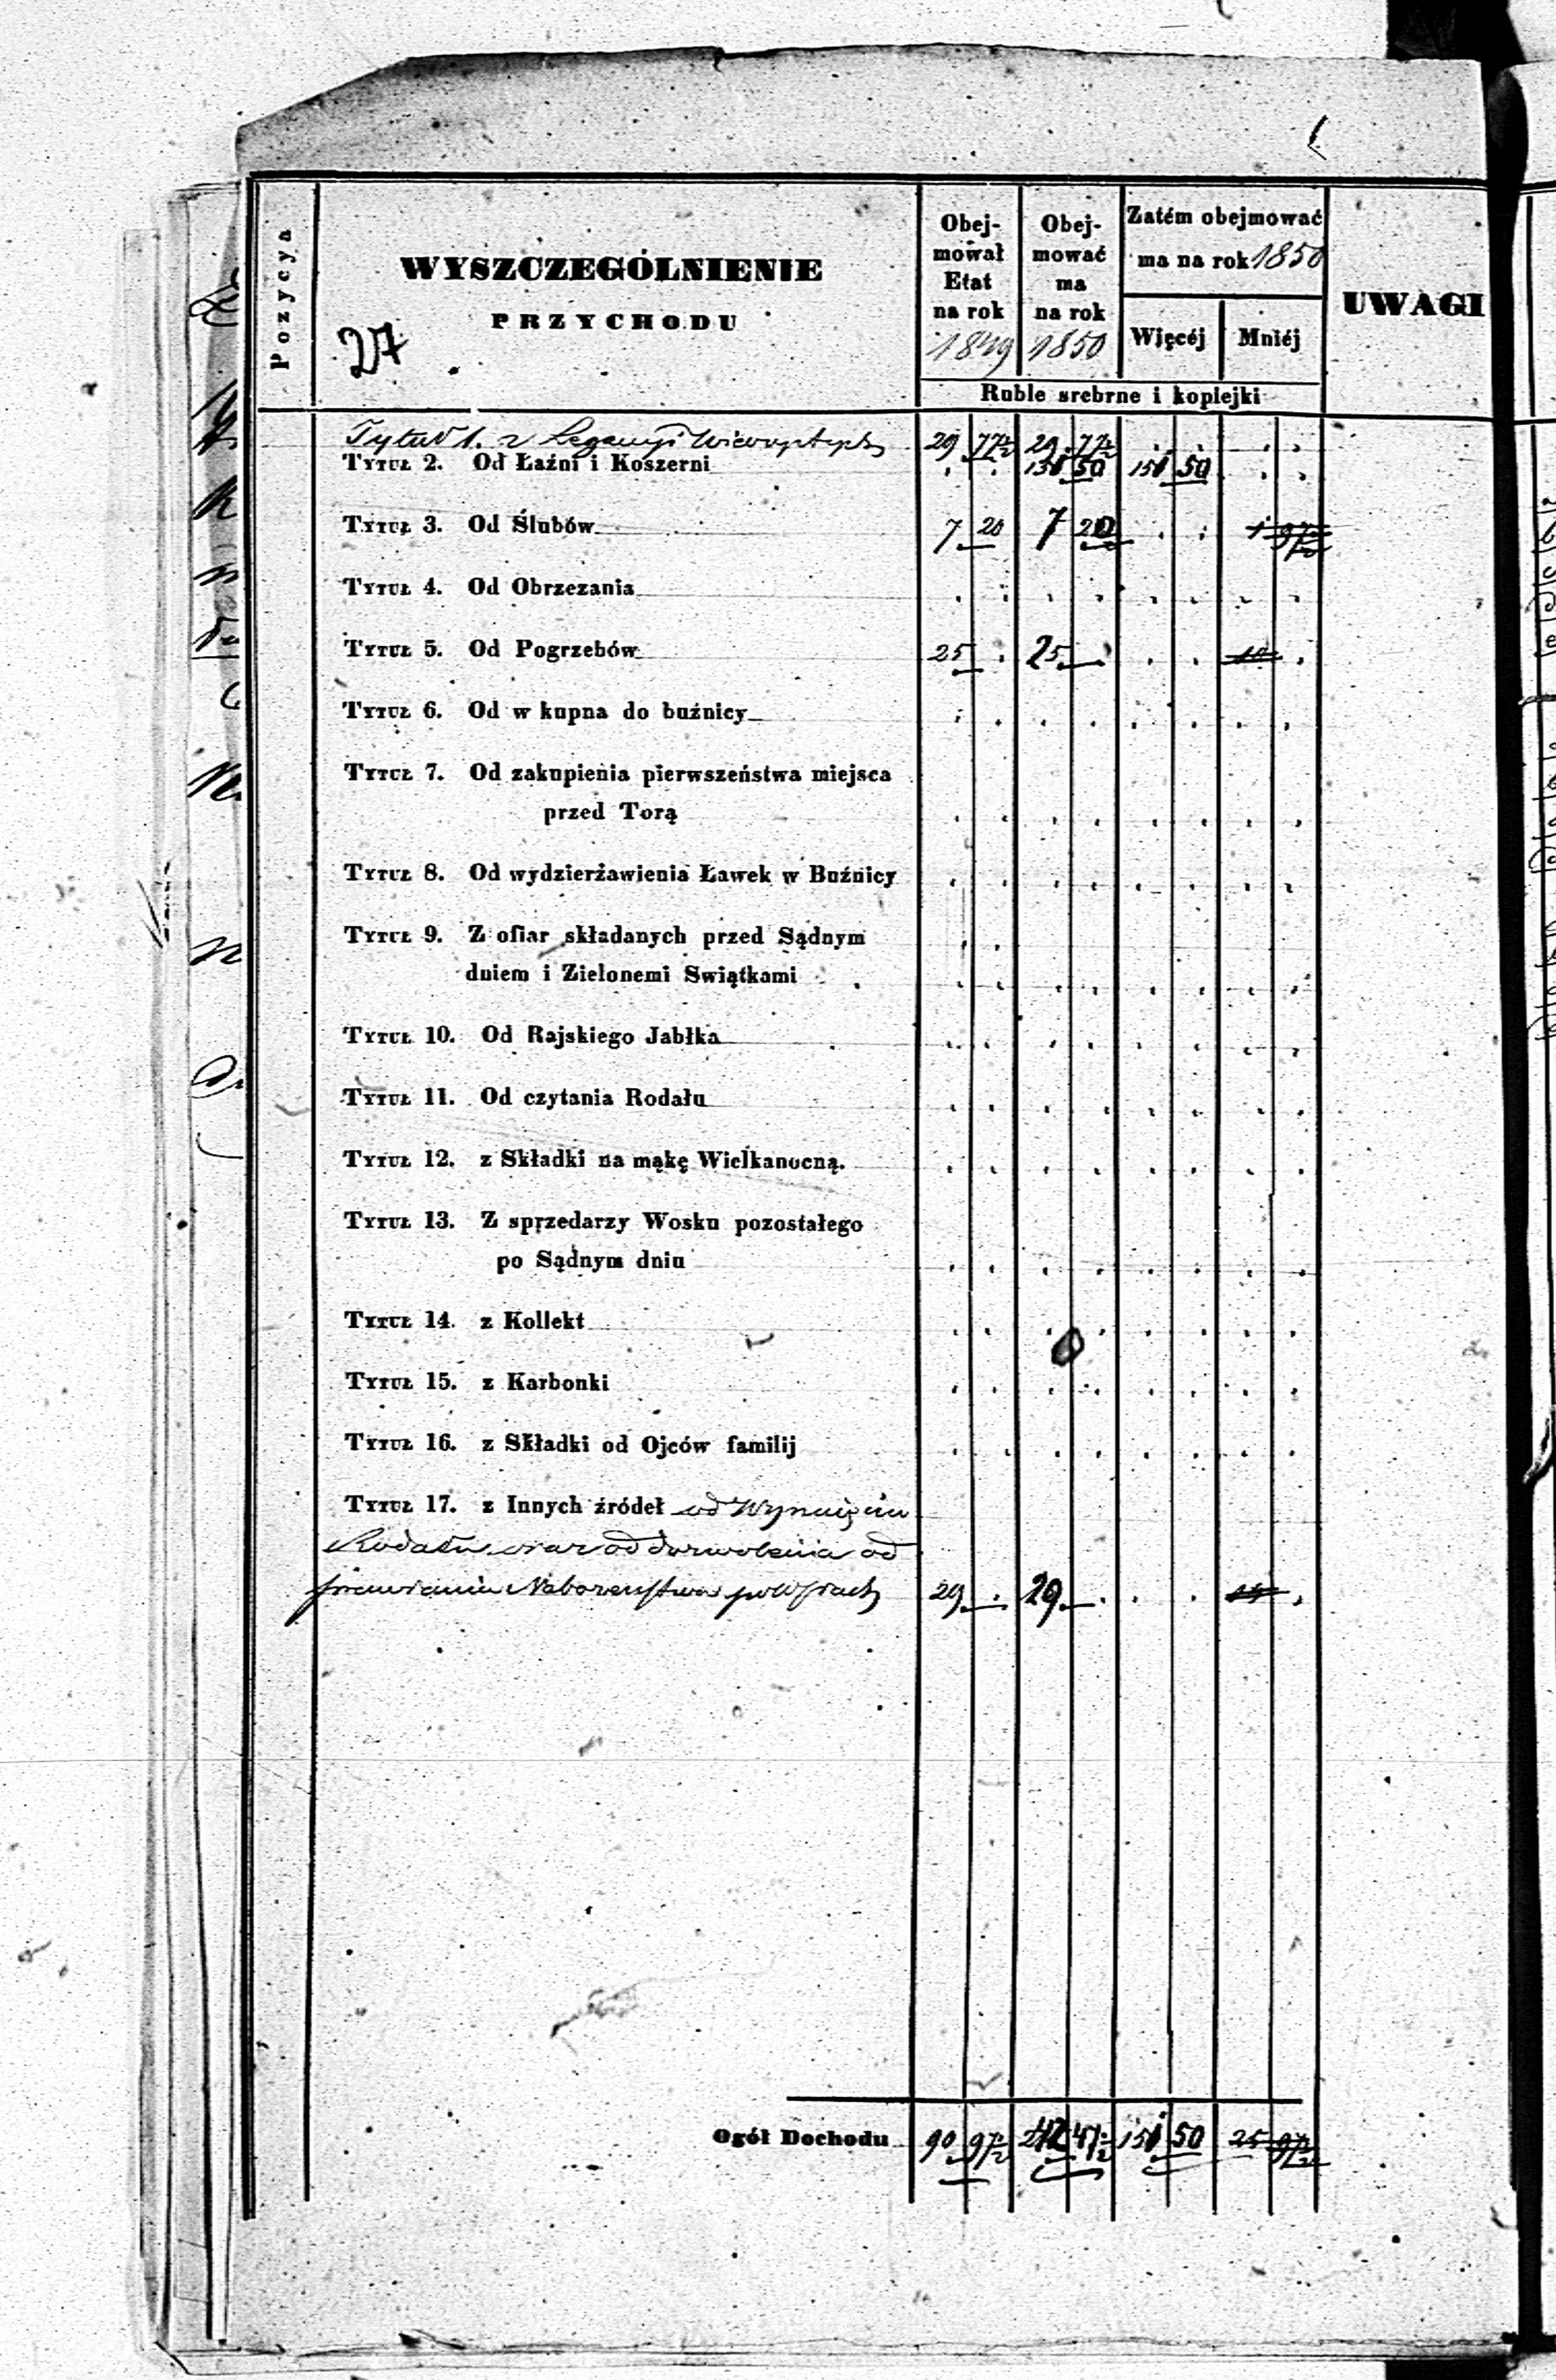 Pozycya
WYSZCZEGÓLNIENIE
PRZYCHODU
27
Obej-
mował
Etat
na rok
1849
Obej-
mować
ma
na rok
1850
Zatém obejmować
ma na rok 1850
Więcéj
Mniéj
UWAGI
Ruble srebrne i kopiejki
Tytuł 1. z 29 77½ 29 77½
Tytuł 2. Od Łaźni i Koszerni 151 50 151 50
Tytuł 3. Od Ślubów 7 20 7 20 1 97½
Tytuł 4. Od Obrzezania
Tytuł 5. Od Pogrzebów 25 25 10
Tytuł 6. Od w kupna do buźnicy
Tytuł 7. Od zakupienia pierwszeństwa miejsca
przed Torą
Tytuł 8. Od wydzierżawienia Ławek w Buźnicy
Tytuł 9. Z ofiar składanych przed Sądnym
dniem i Zielonemi Swiątkami
Tytuł 10. Od Rajskiego Jabłka
Tytuł 11. Od czytania Rodału
Tytuł 12. z Składki na mąkę Wielkanocną.
Tytuł 13. Z sprzedarzy Wosku pozostałego
po Sądnym dniu
Tytuł 14. z Kollekt
Tytuł 15. z Karbonki
Tytuł 16. z Składki od Ojców familij
Tytuł 17. z Innych źródeł od Wynajęcia
Rodałów oraz od dozwolenia od
prawiania Nabożeństwa po Wsiach 29 29
Ogół Dochodu 90 97½ 242 47½ 151 50 25 97½